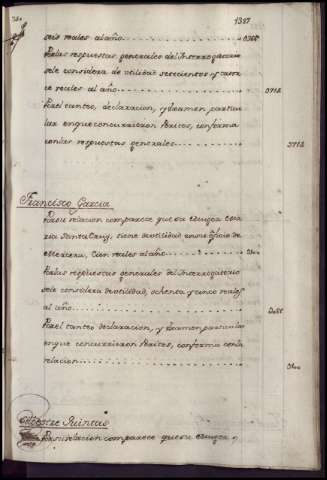 1387
seis reales al año
Por las respuestas generales del Interrogatorio
se le considera de utilidad setecientos y catorce
reales al año
D712
Por el tanteo, declaracion, y examen particular
en que concurrieron Peritos, conforma
con las respuestas generales
D712
Francisco Garcia
Por su relacion comparece que su
tiene de utilidad en su oficio de
Cien reales al año
D100
Por las respuestas generales del Interrogatorio
se le considera de utilidad, ochenta y cinco reales
al año
D085
Por el tanteo declaracion, y examen particular
en que concurrieron Peritos, conforma con la
relacion
D100
Quintas
Por su relacion comparece que su